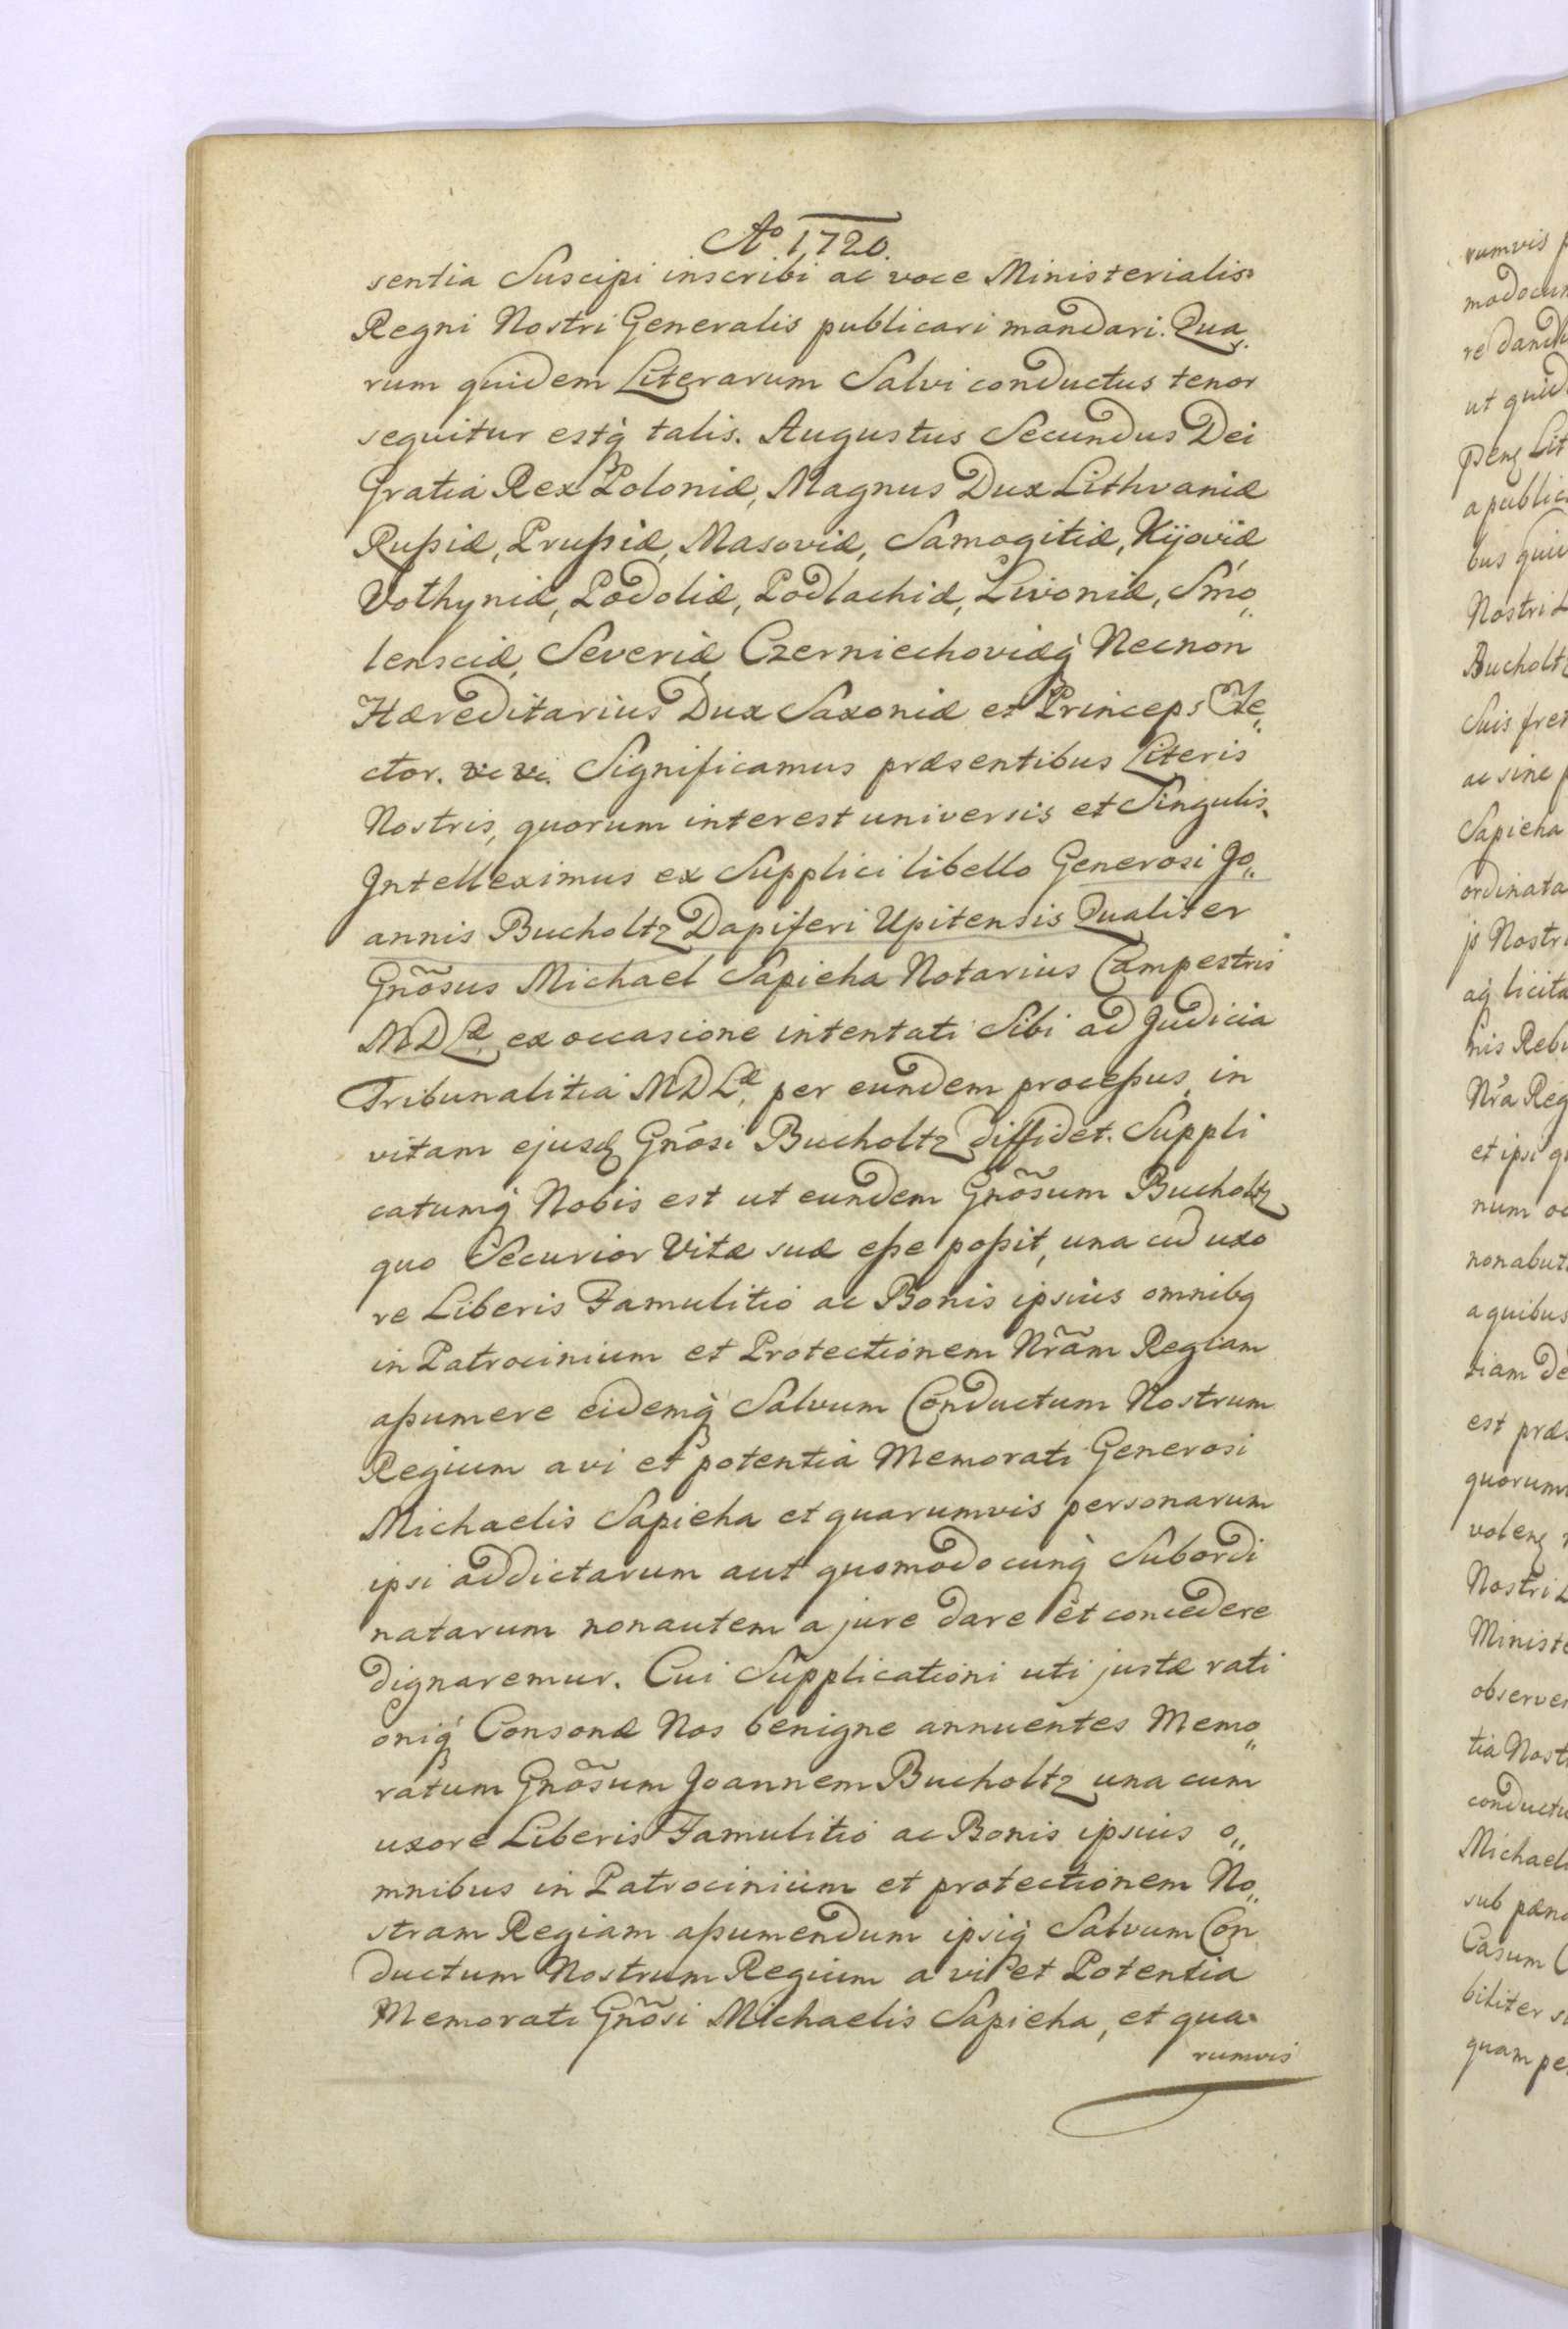 Aō 1720.
sentia Suscipi inscribi ac voce Ministerialis
Regni Nostri Generalis publicari mandari. Qua,,
rum quidem Literarum Salvi conductus tenor
sequitur estq̀ talis. Augustus Secundus Dei
Gratia Rex Poloniæ, Magnus Dux Lithvaniæ
Rußiæ, Prußiæ, Masoviæ, Samogitiæ, Kijoviæ
Volhyniæ, Podoliæ, Podlachiæ, Livoniæ, Smo,,
lensciæ, Severiæ Czerniechoviæq̀ Necnon
Hæreditarius Dux Saxoniæ et Princeps Ele,,
ctor. Significamus præsentibus Literis
Nostris, quorum interest universis et Singulis,
Intelleximus ex Supplici libello Generosi Jo,,
annis Bucholtz Dapiferi Upitensis Qualiter
Gnõsus Michael Sapieha Notarius Campestris
MDLæ, ex occasione intentati Sibi ad Judicia
Tribunalitia MDLæ, per eundem proceßus, in
vitam ejusd Gnõsi Bucholtz diffidet. Suppli
catumq̀ Nobis est ut eundem Gnõsum Bucholtz
quo Securior Vitæ suæ eße poßit, una cū uxo
re Liberis Famulitio ac Bonis ipsius omnibq
in Patrocinium et Protectionem Nrãm Regiam
aßumere eidemq̀ Salvum Conductum Nostrum
Regium a vi et potentia Memorati Generosi
Michaelis Sapieha et quarumvis personarum
ipsi addictarum aut quomodocunq̀ Subordi
natarum non autem a jure dare et concedere
dignaremur. Cui Supplicationi uti justæ rati
oniq̀ Consonæ Nos benigne annuentes Memo,,
ratum Gnõsum Joannem Bucholtz una cum
uxore Liberis Famulitio ac Bonis ipsius o,,
mnibus in Patrocinium et protectionem No,,
stram Regiam aßumendum ipsiq̀ Salvum Con
ductum Nostrum Regium a vi et Potentia
Memorati Gnõsi Michaelis Sapieha, et qua,,
rumvis
rumvis
ut
a
Nostri
Bucholtz
Suis
ac sine
Sapieha
ordinata
Nostr
aq̀ licita
Nrã Reg
et ipsi
num
a quibus
est
Nostri
Ministe
tia Nost
conductu
Michael
sub
Casum
quam pe